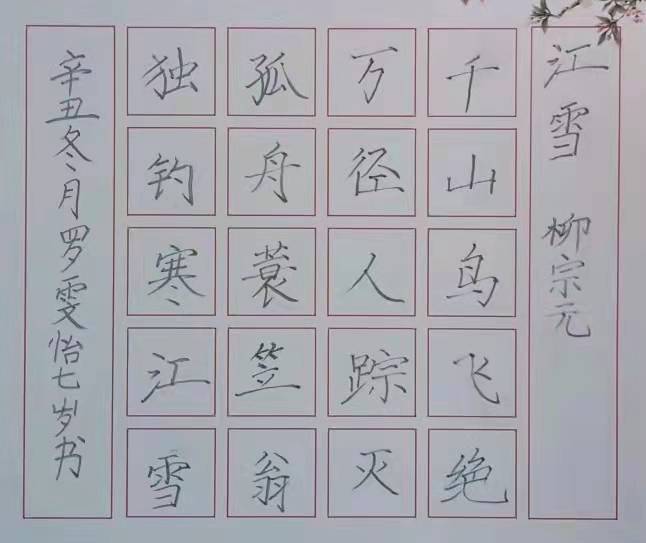 江雪 柳宗元
千山鸟飞绝
万径人踪灭
孤舟蓑笠翁
独钓寒江雪
辛丑冬月罗雯怡七岁书